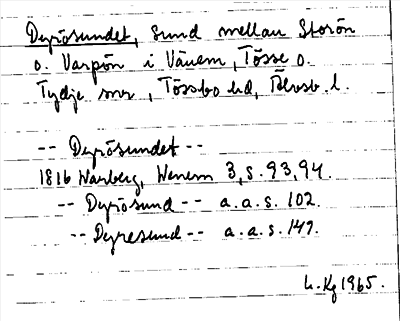 Dyrösundet, sund mellan Storön
o. Varpön i Vänern, Tösse o.
Tydje snr, Tössbo hd, Älvsb. l.
-- Dyrösundet --
1816 Warberg, Wenern 3, s. 93, 94.
-- Dyrösund -- a.a.s. 102.
-- Dyresund -- a.a.s. 147.
L. Kg 1965.